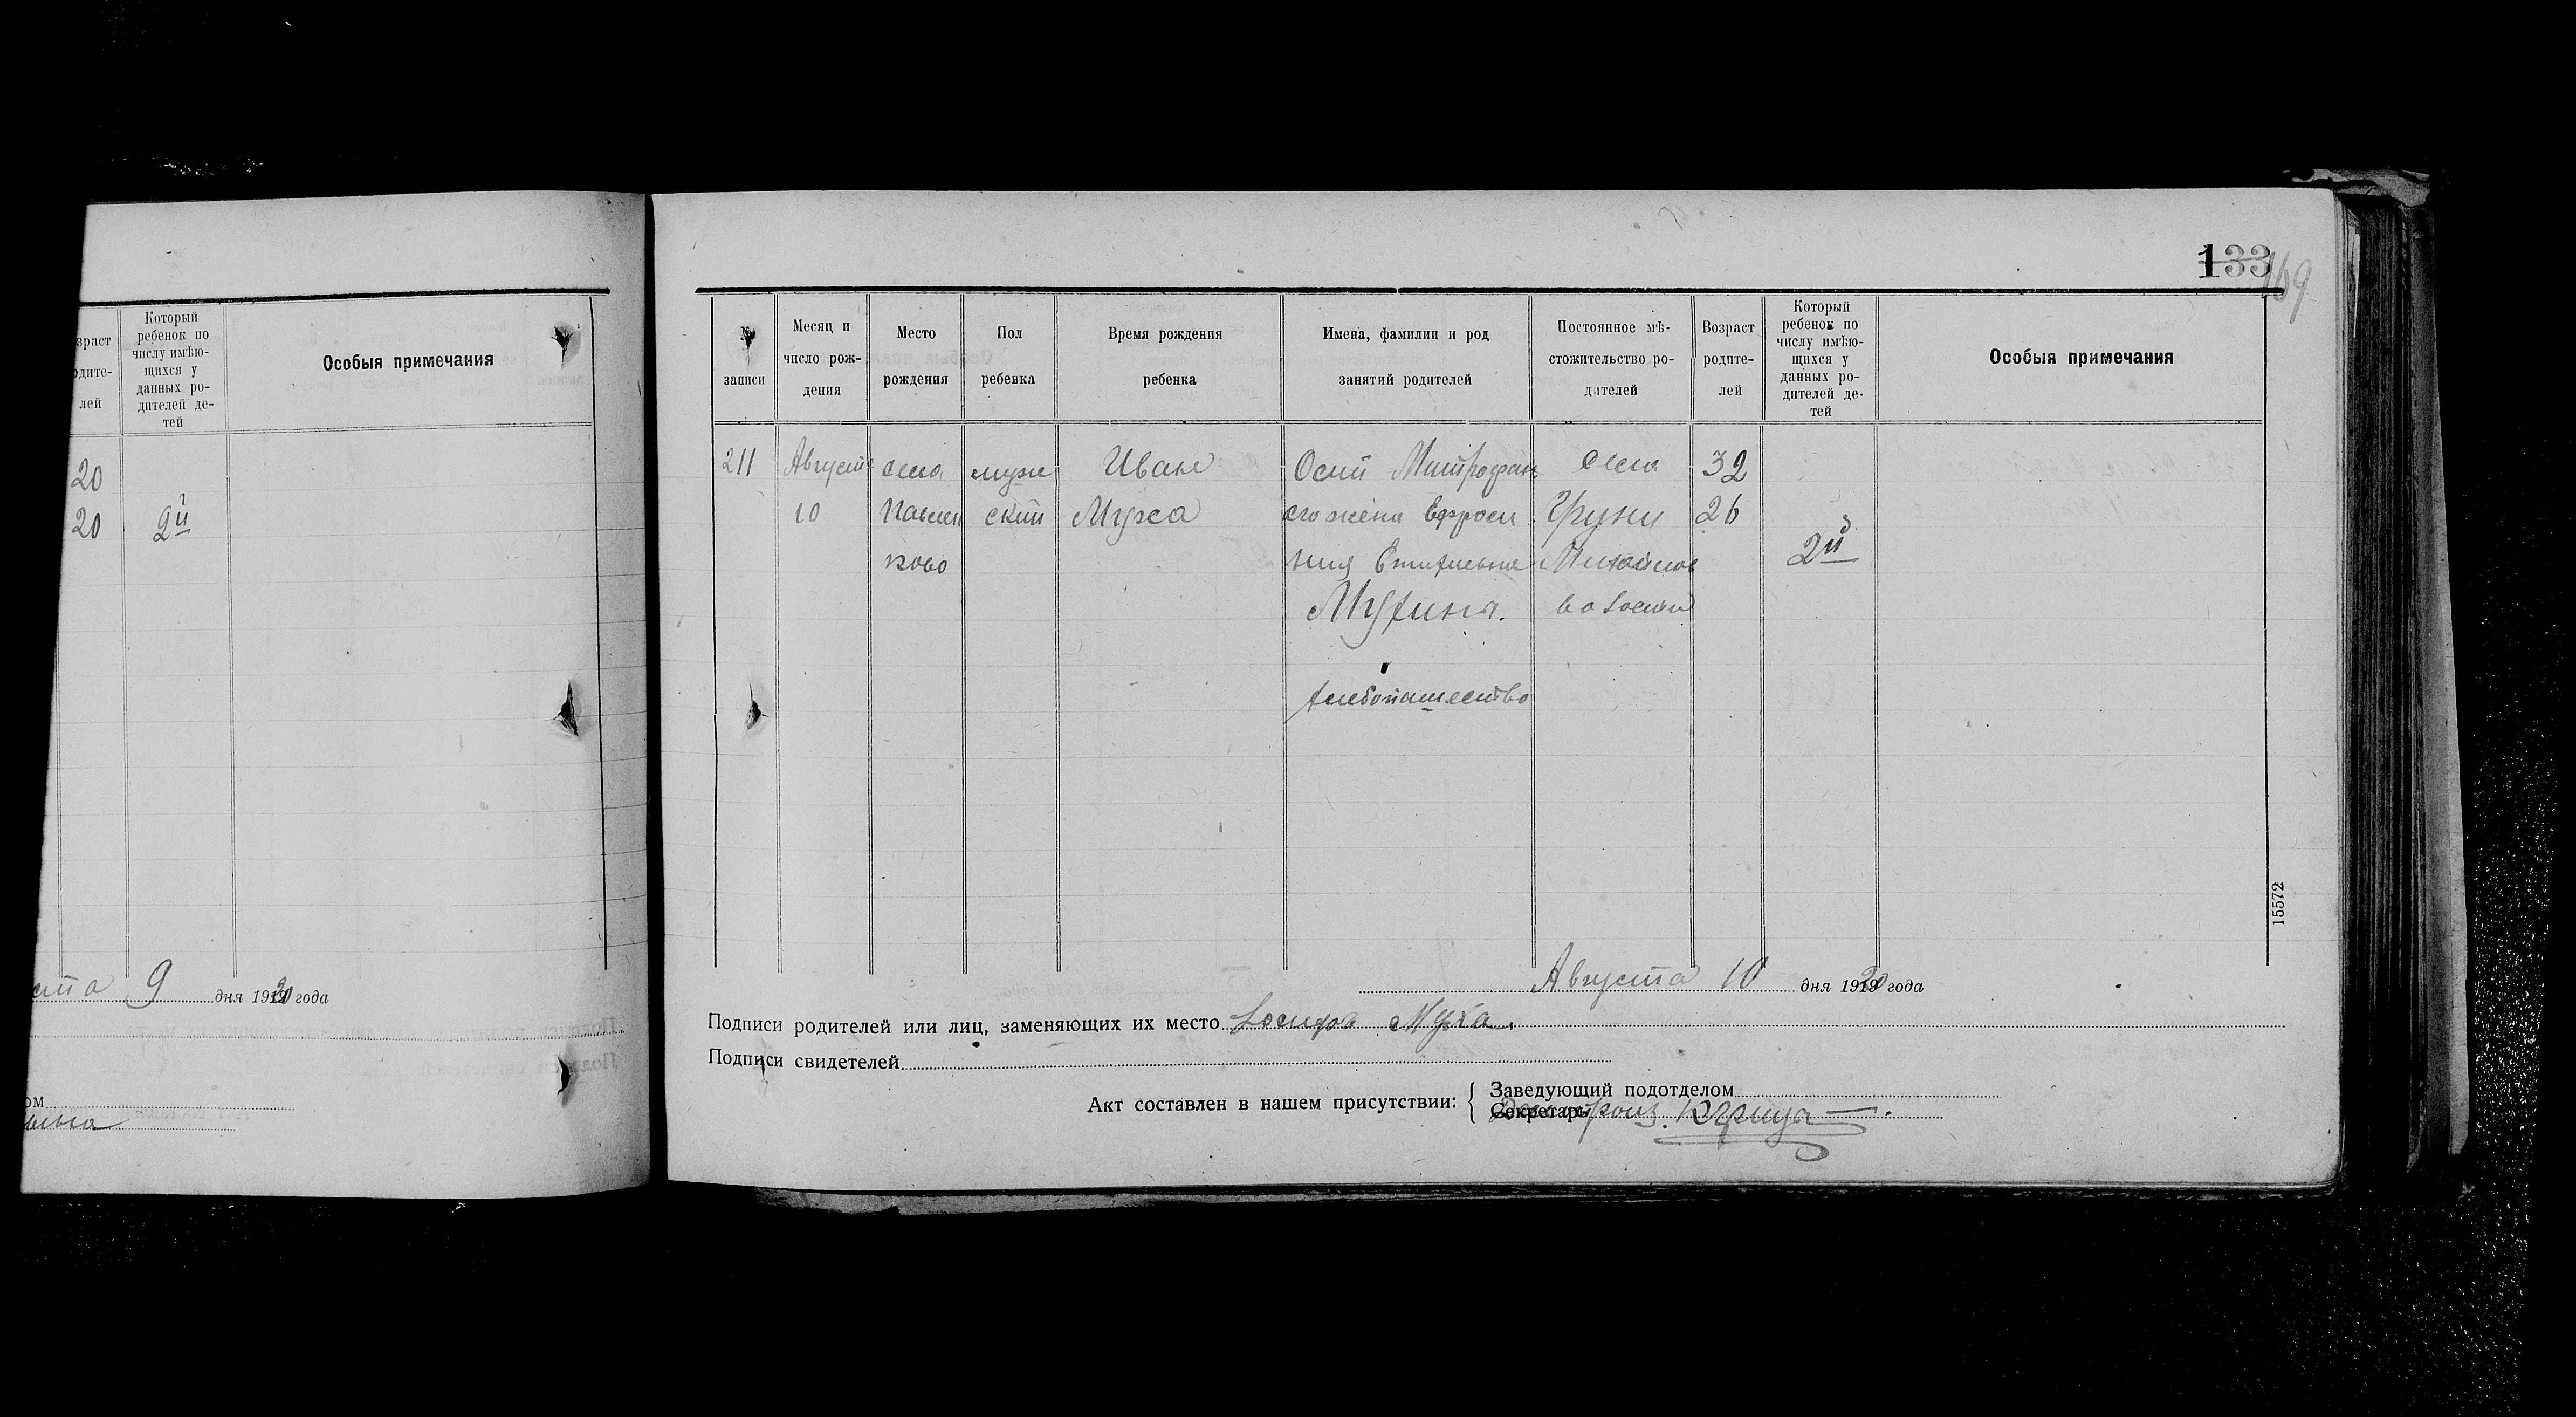 зраст
одите-
лей
Который
ребенок по
числу имѣю-
щихся у
данных ро-
дителей де-
тей
Особыя примечания
20
20
2й
ста 9 дня 1920 года
ом
133
169
№
записи
Месяц и
число рож-
дения
Место
рождения
Пол
ребенка
Время рождения
ребенка
Имена, фамилии и род
занятий родителей
Постоянное мѣ-
стожительство ро-
дителей
Возраст
родите-
лей
Который
ребенок по
числу имѣю-
щихся у
данных ро-
дителей де-
тей
Особыя примечания
211
Август
10
села
Павлен
ково
муж
ский
Иван
Муха
Осип Митрофан
его жена Ефроси
ния
Мухины.
хлебопашество
села
Груни
Михайлов
волости
32
26
2й
15572
Августа 10 дня 1920 года
Подписи родителей или лиц, заменяющих их место Иосифъ Муха.
Подписи свидетелей
Акт составлен в нашем присутствии:
Заведующий подотделом
Секретарь